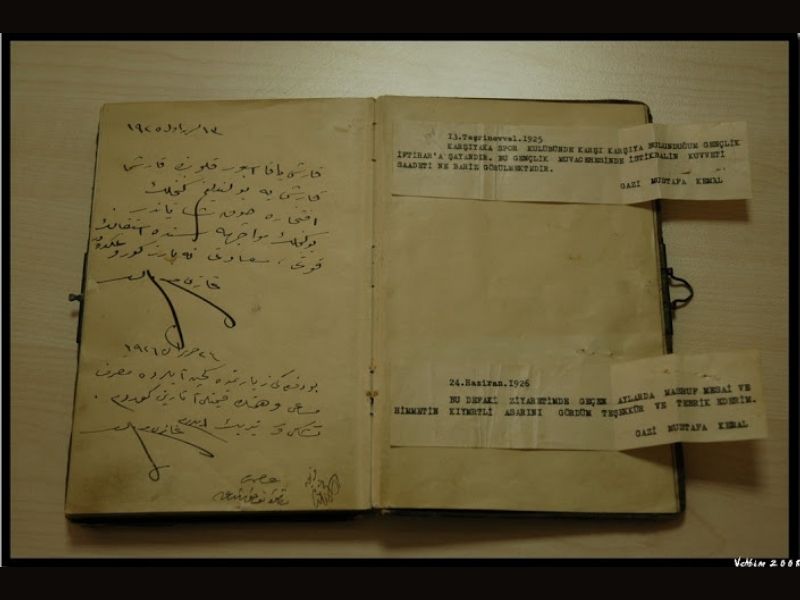 ١٣ ١٩٢٥
قارشی یاقا سپور قلوبنده قارشی
قارشی یه بولندیغم كنجلك
افتخاره شایاندر
بو كنجلك مواجهه سنده استقبالك
قوتی، سعادتی نه بارز كورولمكده
غازی
٢٤ حزیران ١٩٢٦
بو دفعه كی زیارتمده كچن آیلرده مصروف
مساعی و همتك قیمتلی آثارینی كوردم .
تشكر و تبریك ایدرم غازی
13.Teşrinevvel.1925
KARŞIYAKA SPOR KULUBÜNDE KARŞI KARŞIYA BULUNDUĞUM GENÇLİK
İFTİHAR'A'ŞAYANDIR. BU GENÇLİK MUVACEHESİNDE İSTİKBALİN KUVVETİ
SAADETİ NE BARİZ GÖRÜLMEKTEDİR.
GAZİ MUSTAFA KEMAL
24.Haziran.1926
BU DEFAKİ ZİYARETİMDE GEÇEN AYLARDA MASRUF MESAİ VE
HİMMETİN KIYMETLİ ASARINI GÖRDÜM TEŞEKKÜR VE TEBRİK EDERİM.
GAZİ MUSTAFA KEMAL
Vehbim 2008